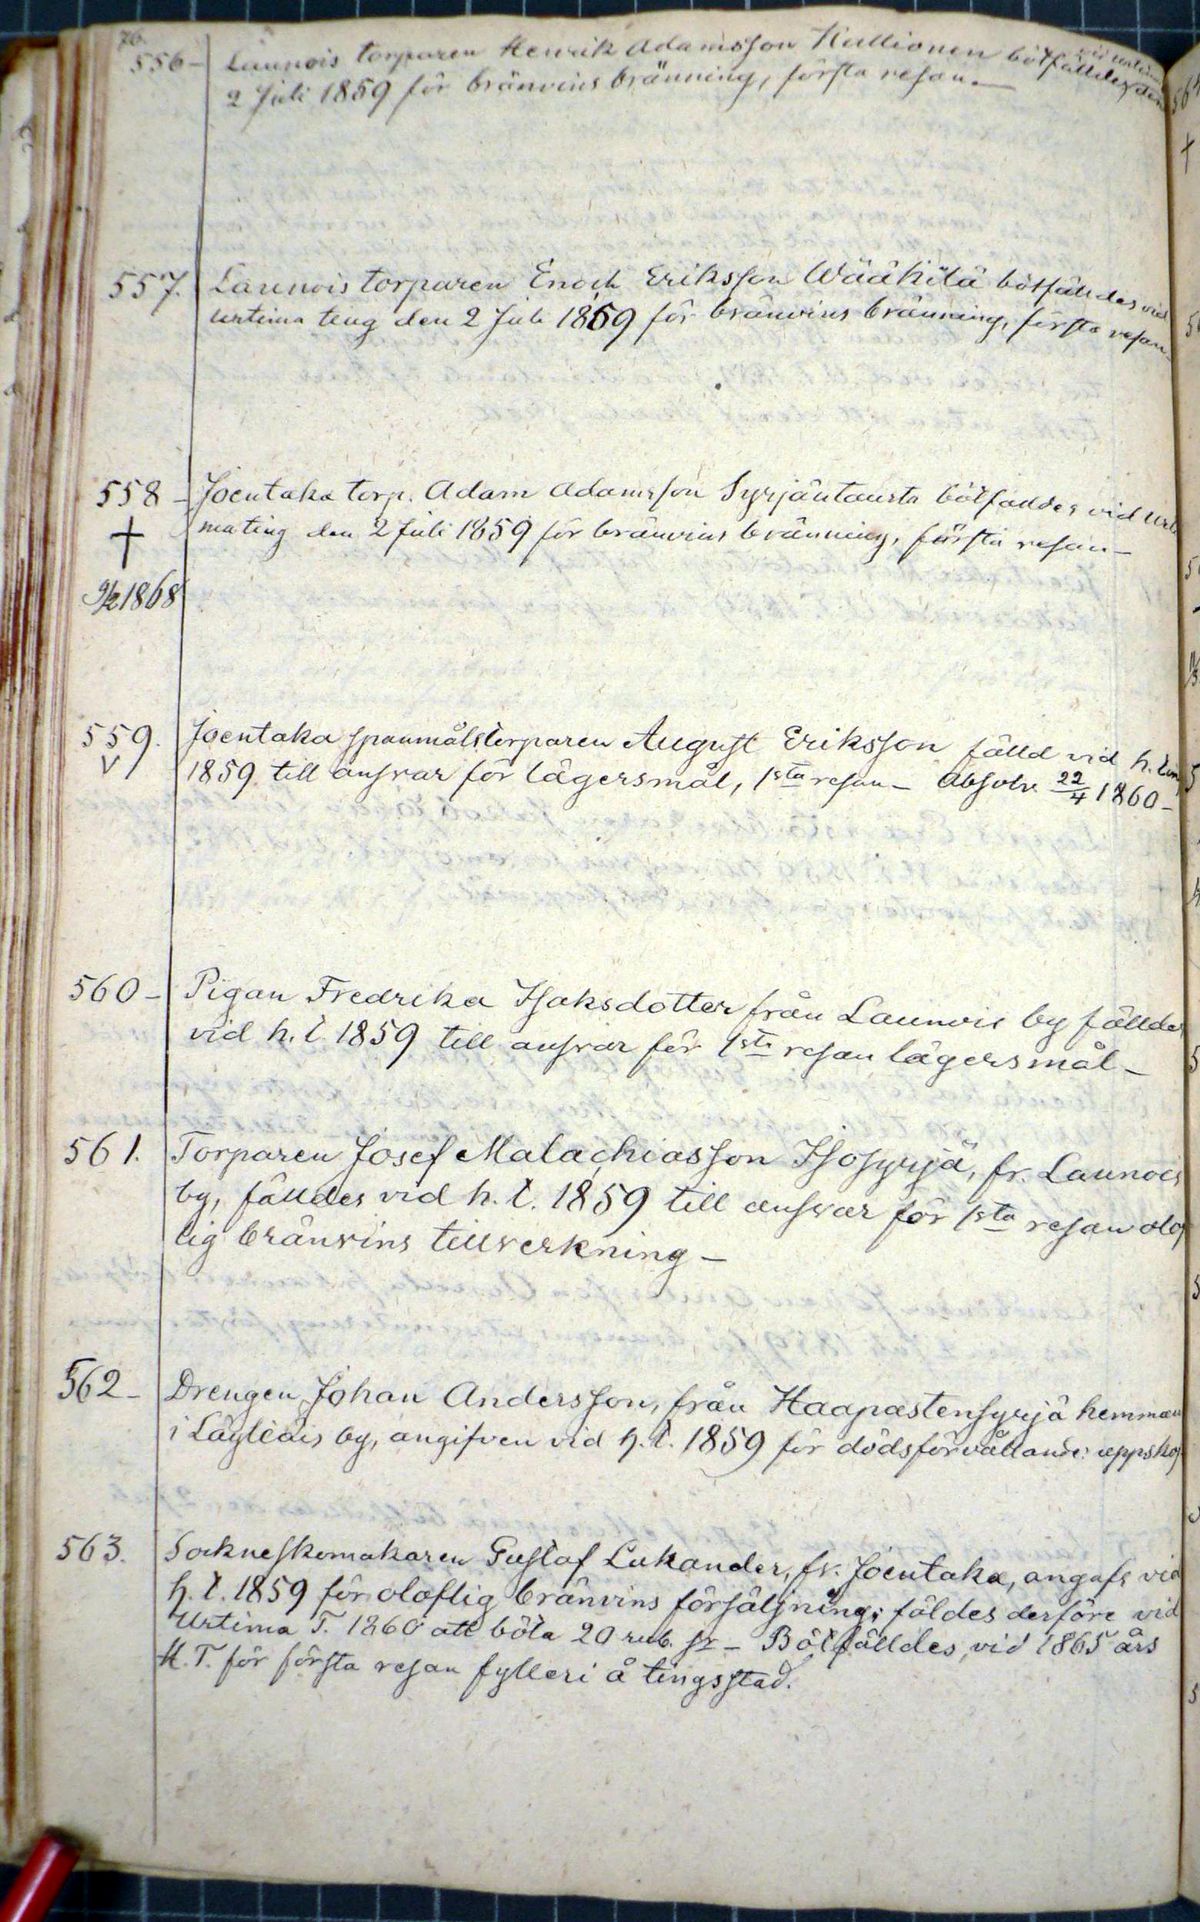 76.
556 - Launois torparen Henrik Adamsson Kallionen bötfälldes vid urtima den
2 Juli 1859 för bränvins bränning, första resan.
557. Launois torparen Enoch Eriksson Wäähilä bötfälldes vid
urtima ting den 2 Juli 1859 för bränvins bränning, första resan
558 - Joentaka torp. Adam Adamsson Syrjäntausta bötfälldes vid urti
+ ma ting den 2 Juli 1859 för bränvins bränning, första resan -
9/2 1868
559. Joentaka spanmålstorparen August Eriksson fälld vid h. ting
V 1859 till ansvar för lägersmål, 1sta resan - Absolv. 22/4 1860 -
560 - Pigan Fredrika Isaksdotter från Launois by fälldes
vid h. t. 1859 till ansvar för 1sta resan lägersmål -
561. Torparen Josef Malachiasson Isosyrjä, fr. Launois
by, fälldes vid h. t. 1859 till ansvar för 1sta resan olof
lig bränvins tillverkning -
562 - Drengen Johan Andersson, från Haapastensyrjä hemman
i Läyliäis by, angifven vid h. t. 1859 för dödsförvållande: uppskof
563. Sockneskomakaren Gustaf Lukander, fr. Joentaka, angafs vid
h. t. 1859 för oloflig bränvins försäljning; fäldes derföre vid
Urtima T. 1860 att böta 20 rub. sr - Bötfälldes vid 1865 års
H. T. för första resan fylleri å tingsstad.